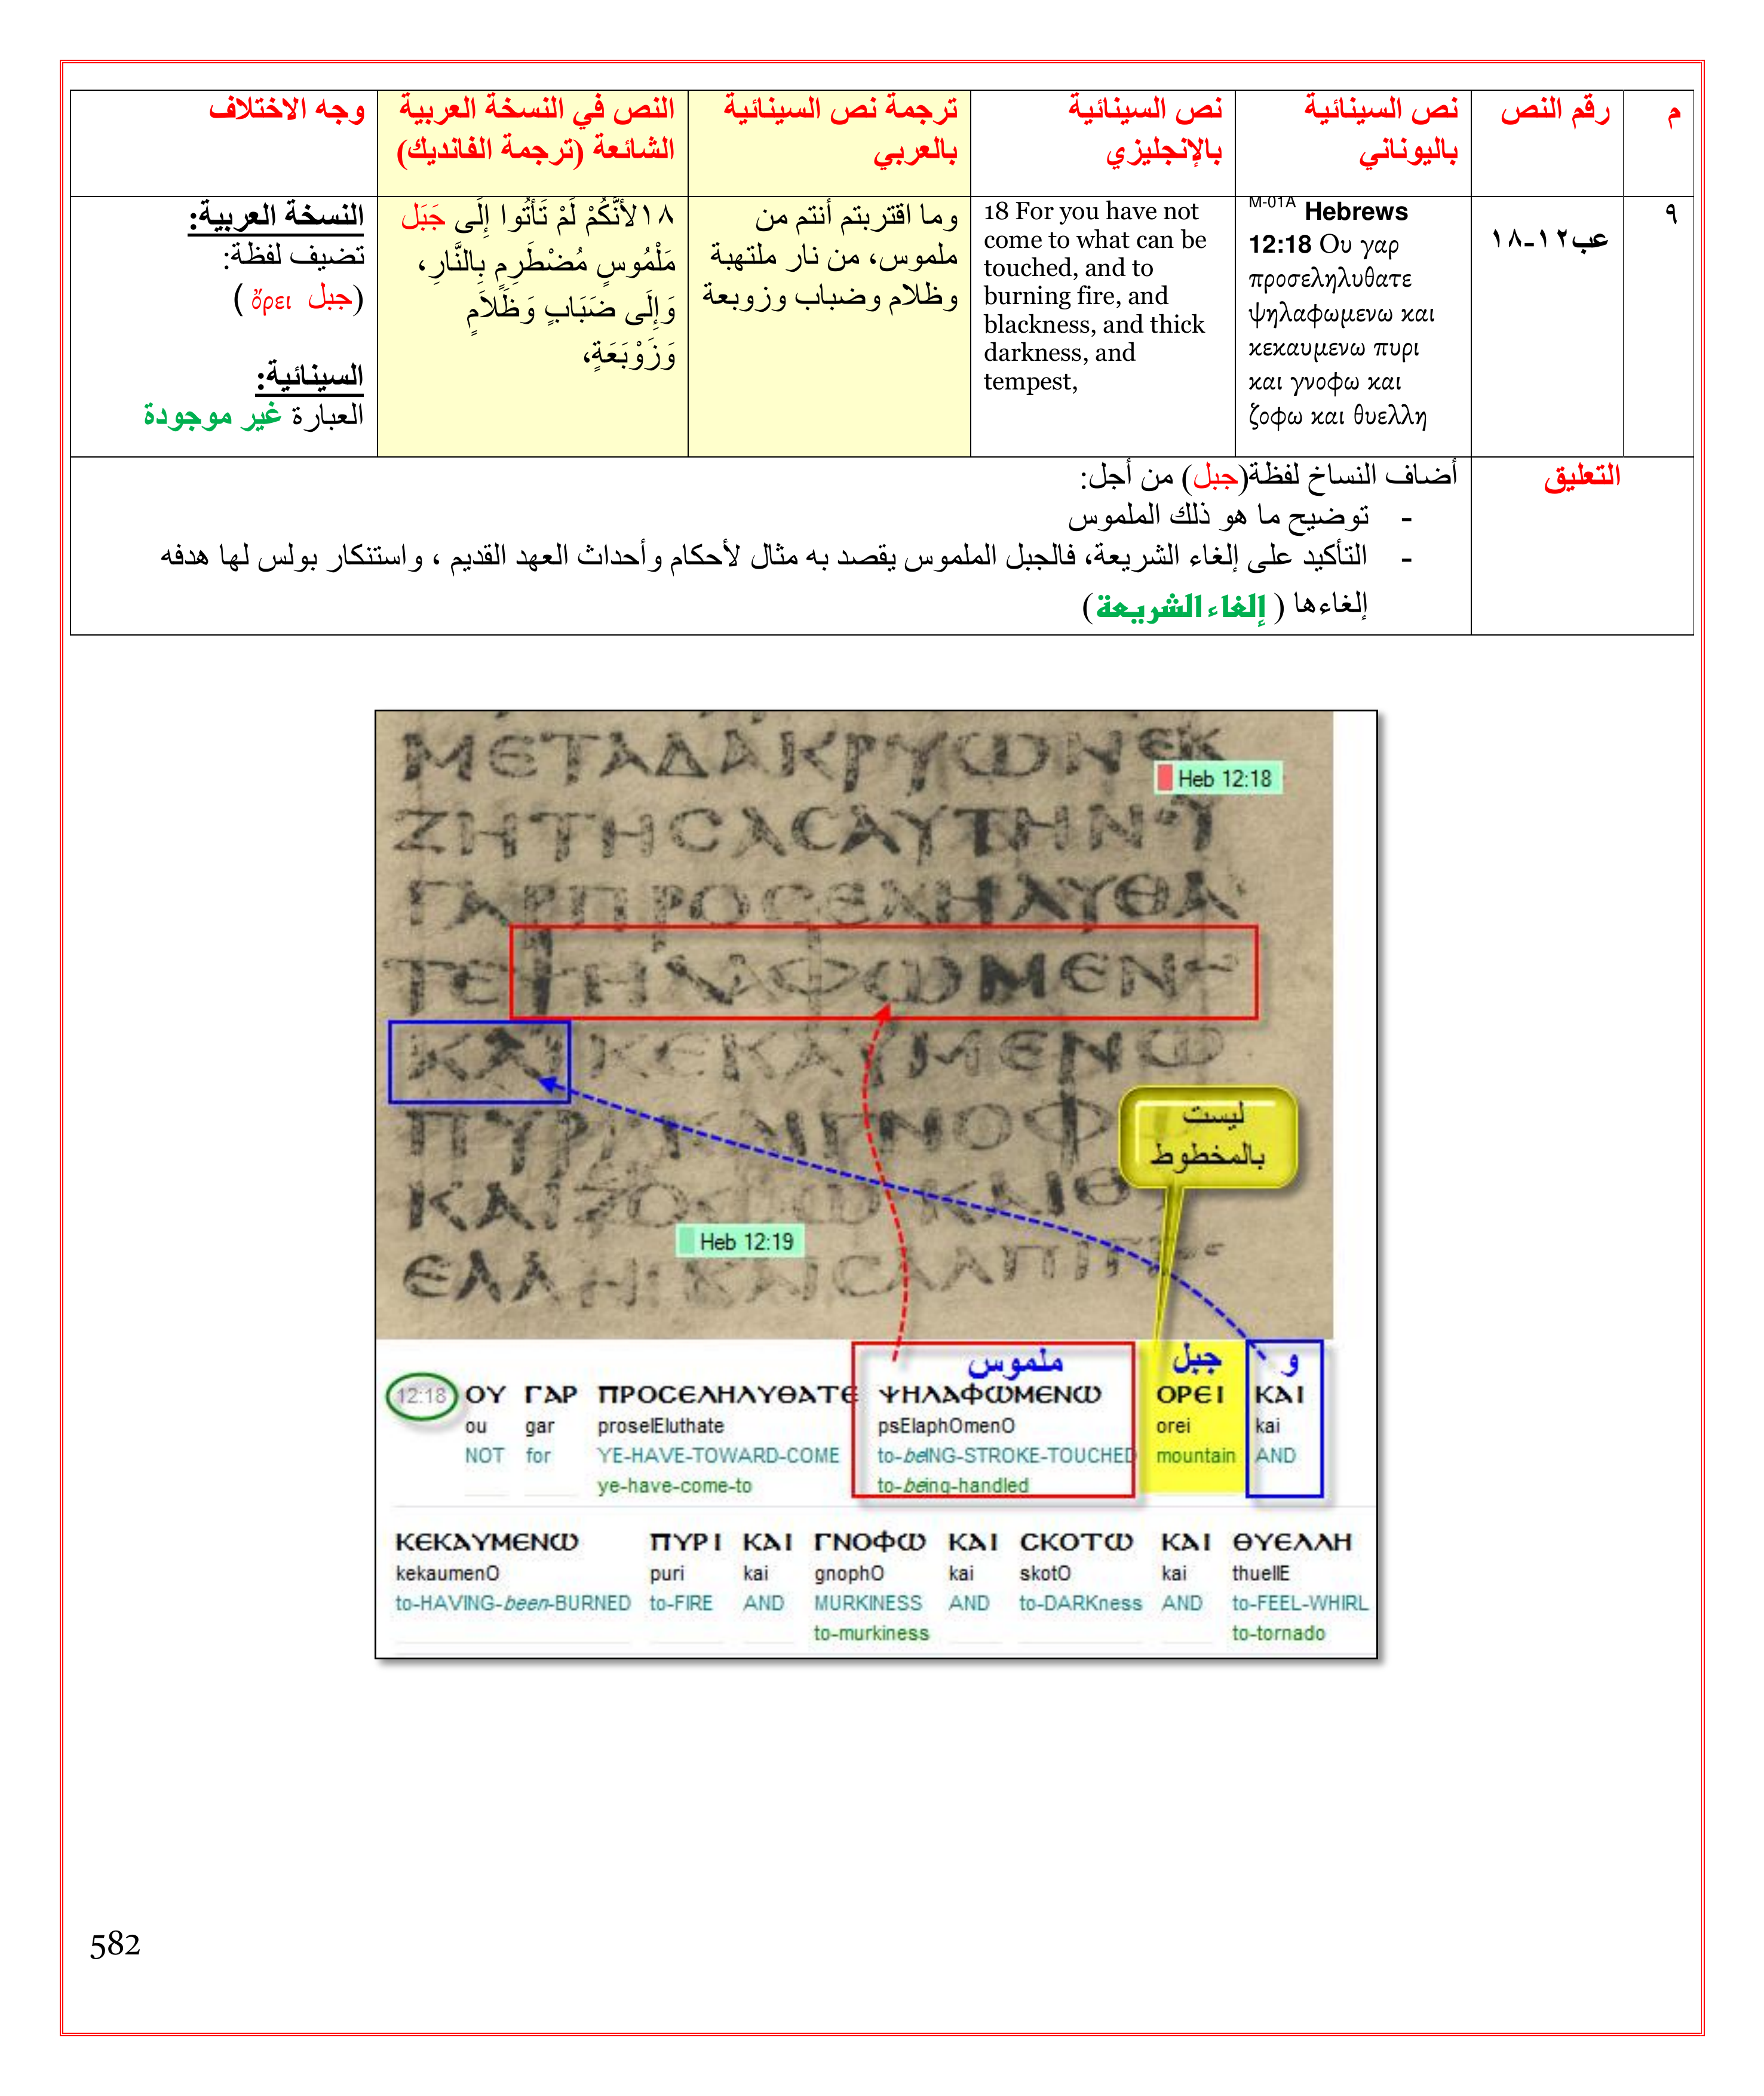 م
رقم النص
نص السينائية
باليوناني
نص السينائية
بالإنجليزي
ترجمة نص السينائية
بالعربي
النص في النسخة العربية
الشائعة (ترجمة الفانديك)
وجه الاختلاف
٩
عب١٢-١٨
M-01A Hebrews
12:18 Ου γαρ
προσεληλυθατε
ψηλαφωμενω και
κεκαυμενω πυρι
και γνοφω και
ζοφω και θυελλη
18 For you have not
come to what can be
touched, and to
burning fire, and
blackness, and thick
darkness, and
tempest,
وما اقتربتم أنتم من
ملموس، من نار ملتهبة
وظلام وضباب وزوبعة
١٨لأَنَّكُمْ لَمْ تَأْتُوا إِلَى جَبَل
مَلْمُوسٍ مُضْطَرِمٍ بِالنَّارِ،
وَإِلَى ضَبَابٍ وَظَلاَمٍ
وَزَوْبَعَةٍ،
النسخة العربية:
تضيف لفظة:
(جبل ὄρει )
السينائية:
العبارة غير موجودة
التعليق
أضاف النساخ لفظة(جبل) من أجل:
- توضيح ما هو ذلك الملموس
- التأكيد على إلغاء الشريعة، فالجبل الملموس يقصد به مثال لأحكام وأحداث العهد القديم ، واستنكار بولس لها هدفه
إلغاءها ( إلغاء الشريعة)
ΜΕΤΑΔΑΚΡΥΩΝΕΚ
Heb 12:18
ΖΗΤΗCΑCΑΥΤΗΝΟΥ
ΓΑΡΠΡΟCΕΛΗΛΥΘΑ
ΤΕΨΗΛΑΦΩΜΕΝΩ
ΚΑΙΚΕΚΑΥΜΕΝΩ
ΠΥΡΙΚΑΙΓΝΟΦ
ليست
بالمخطوط
ΚΑΙΖΟΦΩΚΑΙΘ
Heb 12:19
ΕΛΛΗΚΑΙCΑΛΠΙΓ
ملموس جبل و
12:18 ΟΥ ΓΑΡ ΠΡΟCΕΛΗΛΥΘΑΤΕ ΨΗΛΑΦΩΜΕΝΩ ΟΡΕΙ ΚΑΙ
ou gar proselEluthate psElaphOmenO orei kai
NOT for YE-HAVE-TOWARD-COME to-beING-STROKE-TOUCHED mountain AND
ye-have-come-to to-being-handled
ΚΕΚΑΥΜΕΝΩ ΠΥΡΙ ΚΑΙ ΓΝΟΦΩ ΚΑΙ CΚΟΤΩ ΚΑΙ ΘΥΕΛΛΗ
kekaumenO puri kai gnophO kai skotO kai thuellE
to-HAVING-been-BURNED to-FIRE AND MURKINESS AND to-DARKness AND to-FEEL-WHIRL
to-murkiness to-tornado
582